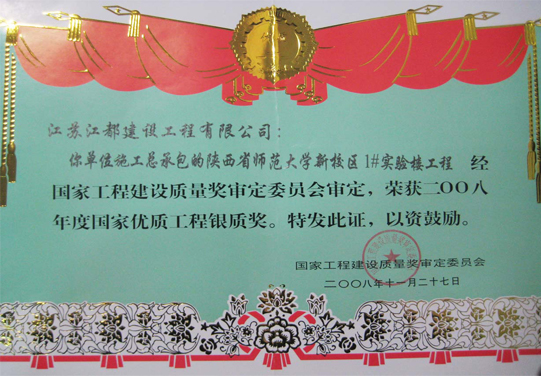 江苏江都建设工程有限公司：
你单位施工总承包的陕西省师范大学新校区1#实验楼工程 经
国家工程建设质量奖审定委员会审定，荣获二〇〇八
年度国家优质工程银质奖。特发此证，以资鼓励。
国家工程建设质量奖审定委员会
二〇〇八年十一月二十七日